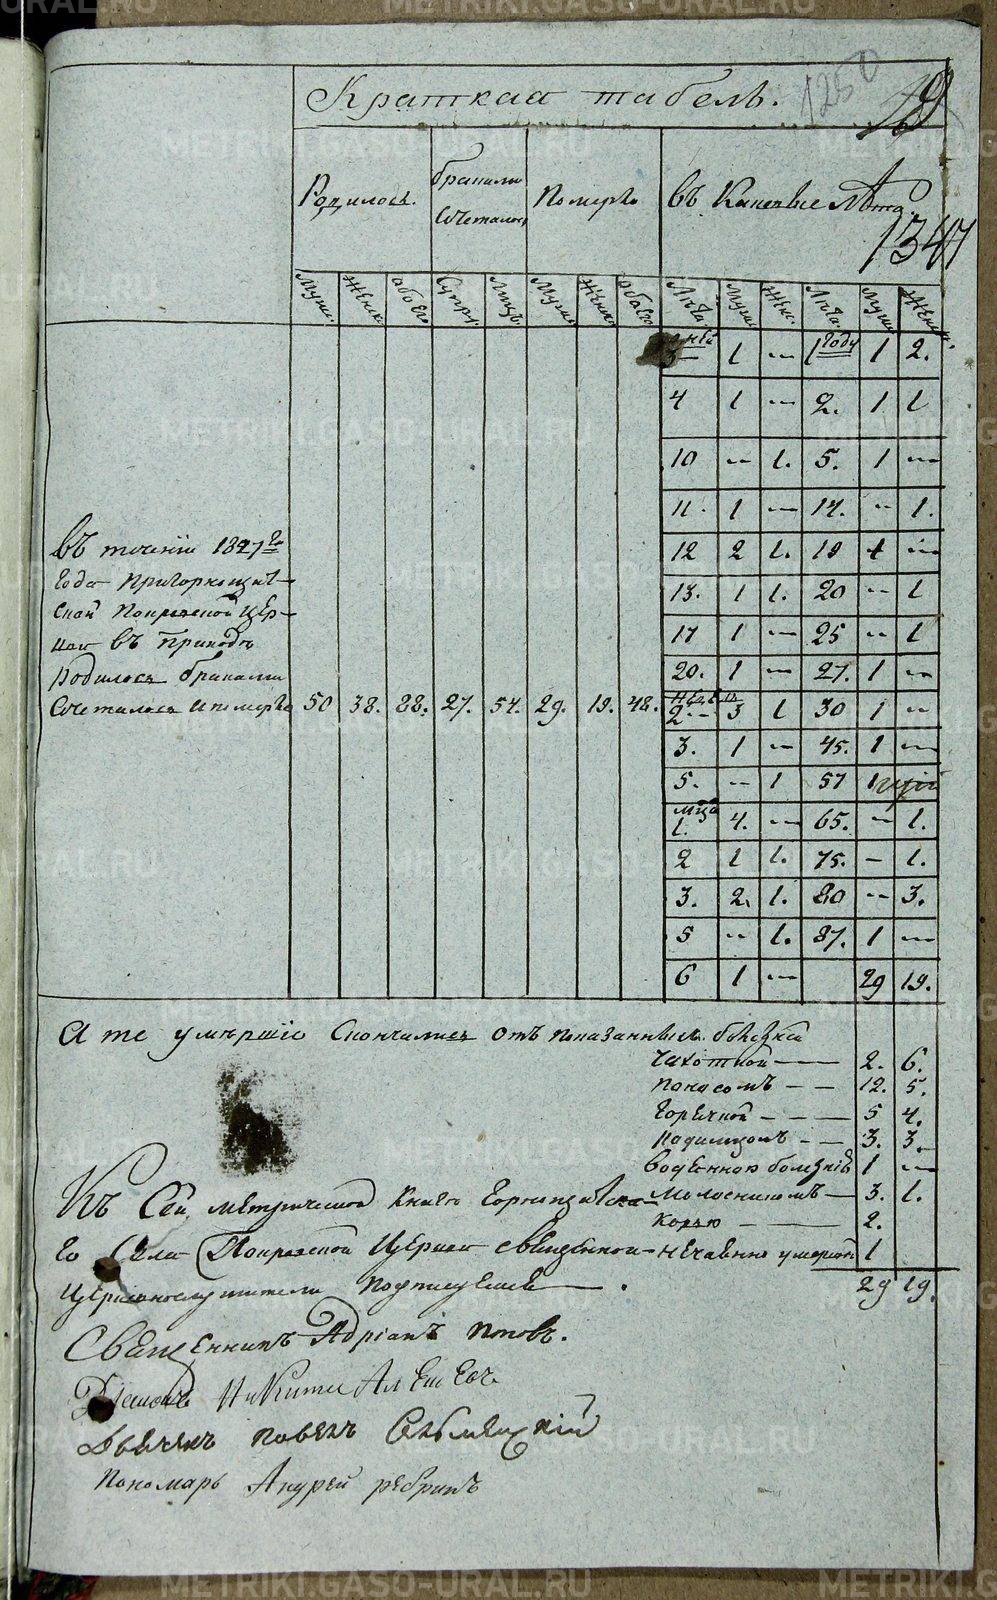 METRIKI.GASO-URAL.RU
Краткая табель.
1250
Родилось.
браками сочеталось
Померло
въ Каковые Лѣта.
1347
Муж. Женск. обоего Супр. Лицъ Муж. Женск. обоего Лѣта Муж. Жен. Лѣта Муж. Женск.
дней 3 1 — 1 году 1 2.
4 1 — 2. 1 1
10 — 1. 5. 1 —
11. 1 — 14. — 1.
12 2 1. 19 1 —
13. 1 1. 20 — 1
17 1 — 25 — 1
20. 1 — 27. 1 —
2 — 3 1 30 1 —
3. 1 — 45. 1 —
5. — 1 57 1
мца 1. 4. — 65. — 1.
2 1 1. 75. — 1.
3. 2. 1. 80 — 3.
5 — 1. 87. 1 —
6 1 — 29 19.
въ теченіи 1847го
года
ской Покровской Цер-
кви въ Приходѣ
родилось браками
Сочеталось и померло 50 38. 88. 27. 54. 29. 19. 48.
А те умершіе Скончались отъ показанныхъ болезней
Чахоткой — 2. 6.
поносомъ — — 12. 5.
горячкой — — — 5 4.
родимцомъ — — 3. 3.
водянною болезнію 1 —
Къ Сей метрической Книге — 3. 1.
Корью — — 2.
го Села Покровской Церкви священно- нечаянно умершій 1
церковнослужители подписуемся — . 29 19.
Священникъ Адріанъ Поповъ.
Діаконъ Никита
Дьячекъ Павелъ
Пономарь Андрей